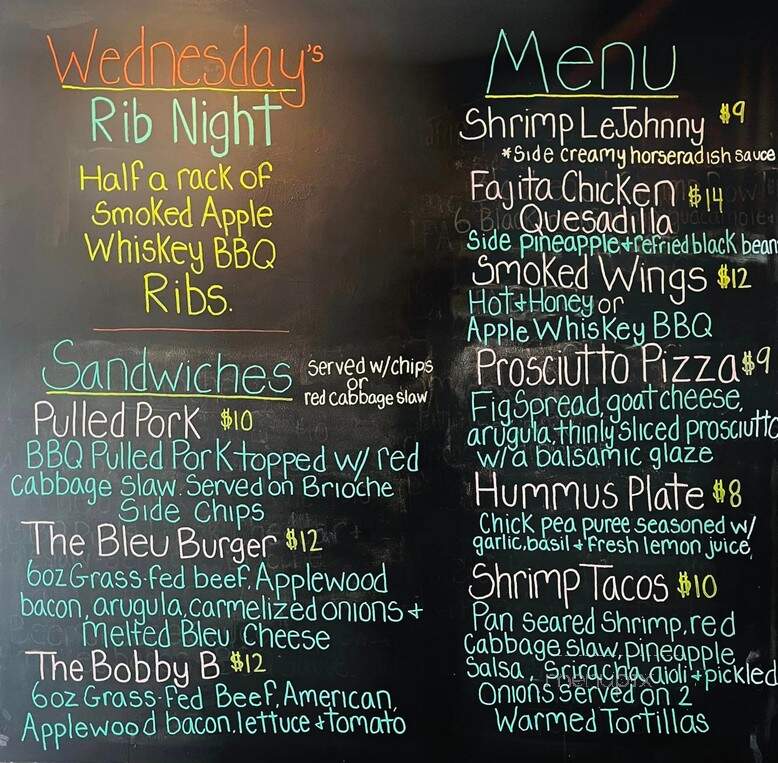 Wednesday's
Rib Night
Half a rack of
Smoked Apple
Whiskey BBQ
Ribs.
Sandwiches
Served w/chips
or
red cabbage slaw
Pulled Pork $10
BBQ Pulled Pork topped w/ red
cabbage slaw. Served on Brioche
Side Chips
The Bleu Burger $12
6oz Grass-fed beef, Applewood
bacon, arugula, carmelized onions +
Melted Bleu Cheese
The Bobby B $12
6oz Grass-Fed Beef, American,
Applewood bacon, lettuce + tomato
Menu
Shrimp LeJohnny $9
*Side creamy horseradish sauce
Fajita Chicken $14
Quesadilla
Side pineapple + refried black bean
Smoked Wings $12
Hot + Honey or
Apple Whiskey BBQ
Prosciutto Pizza $9
Fig Spread, goat cheese,
arugula, thinly sliced prosciutto
w/a balsamic glaze
Hummus Plate $8
Chick pea puree seasoned w/
garlic, basil + fresh lemon juice,
Shrimp Tacos $10
Pan seared Shrimp, red
Cabbage slaw, pineapple
Salsa, Sriracha aioli + pickled
Onions Served on 2
Warmed Tortillas